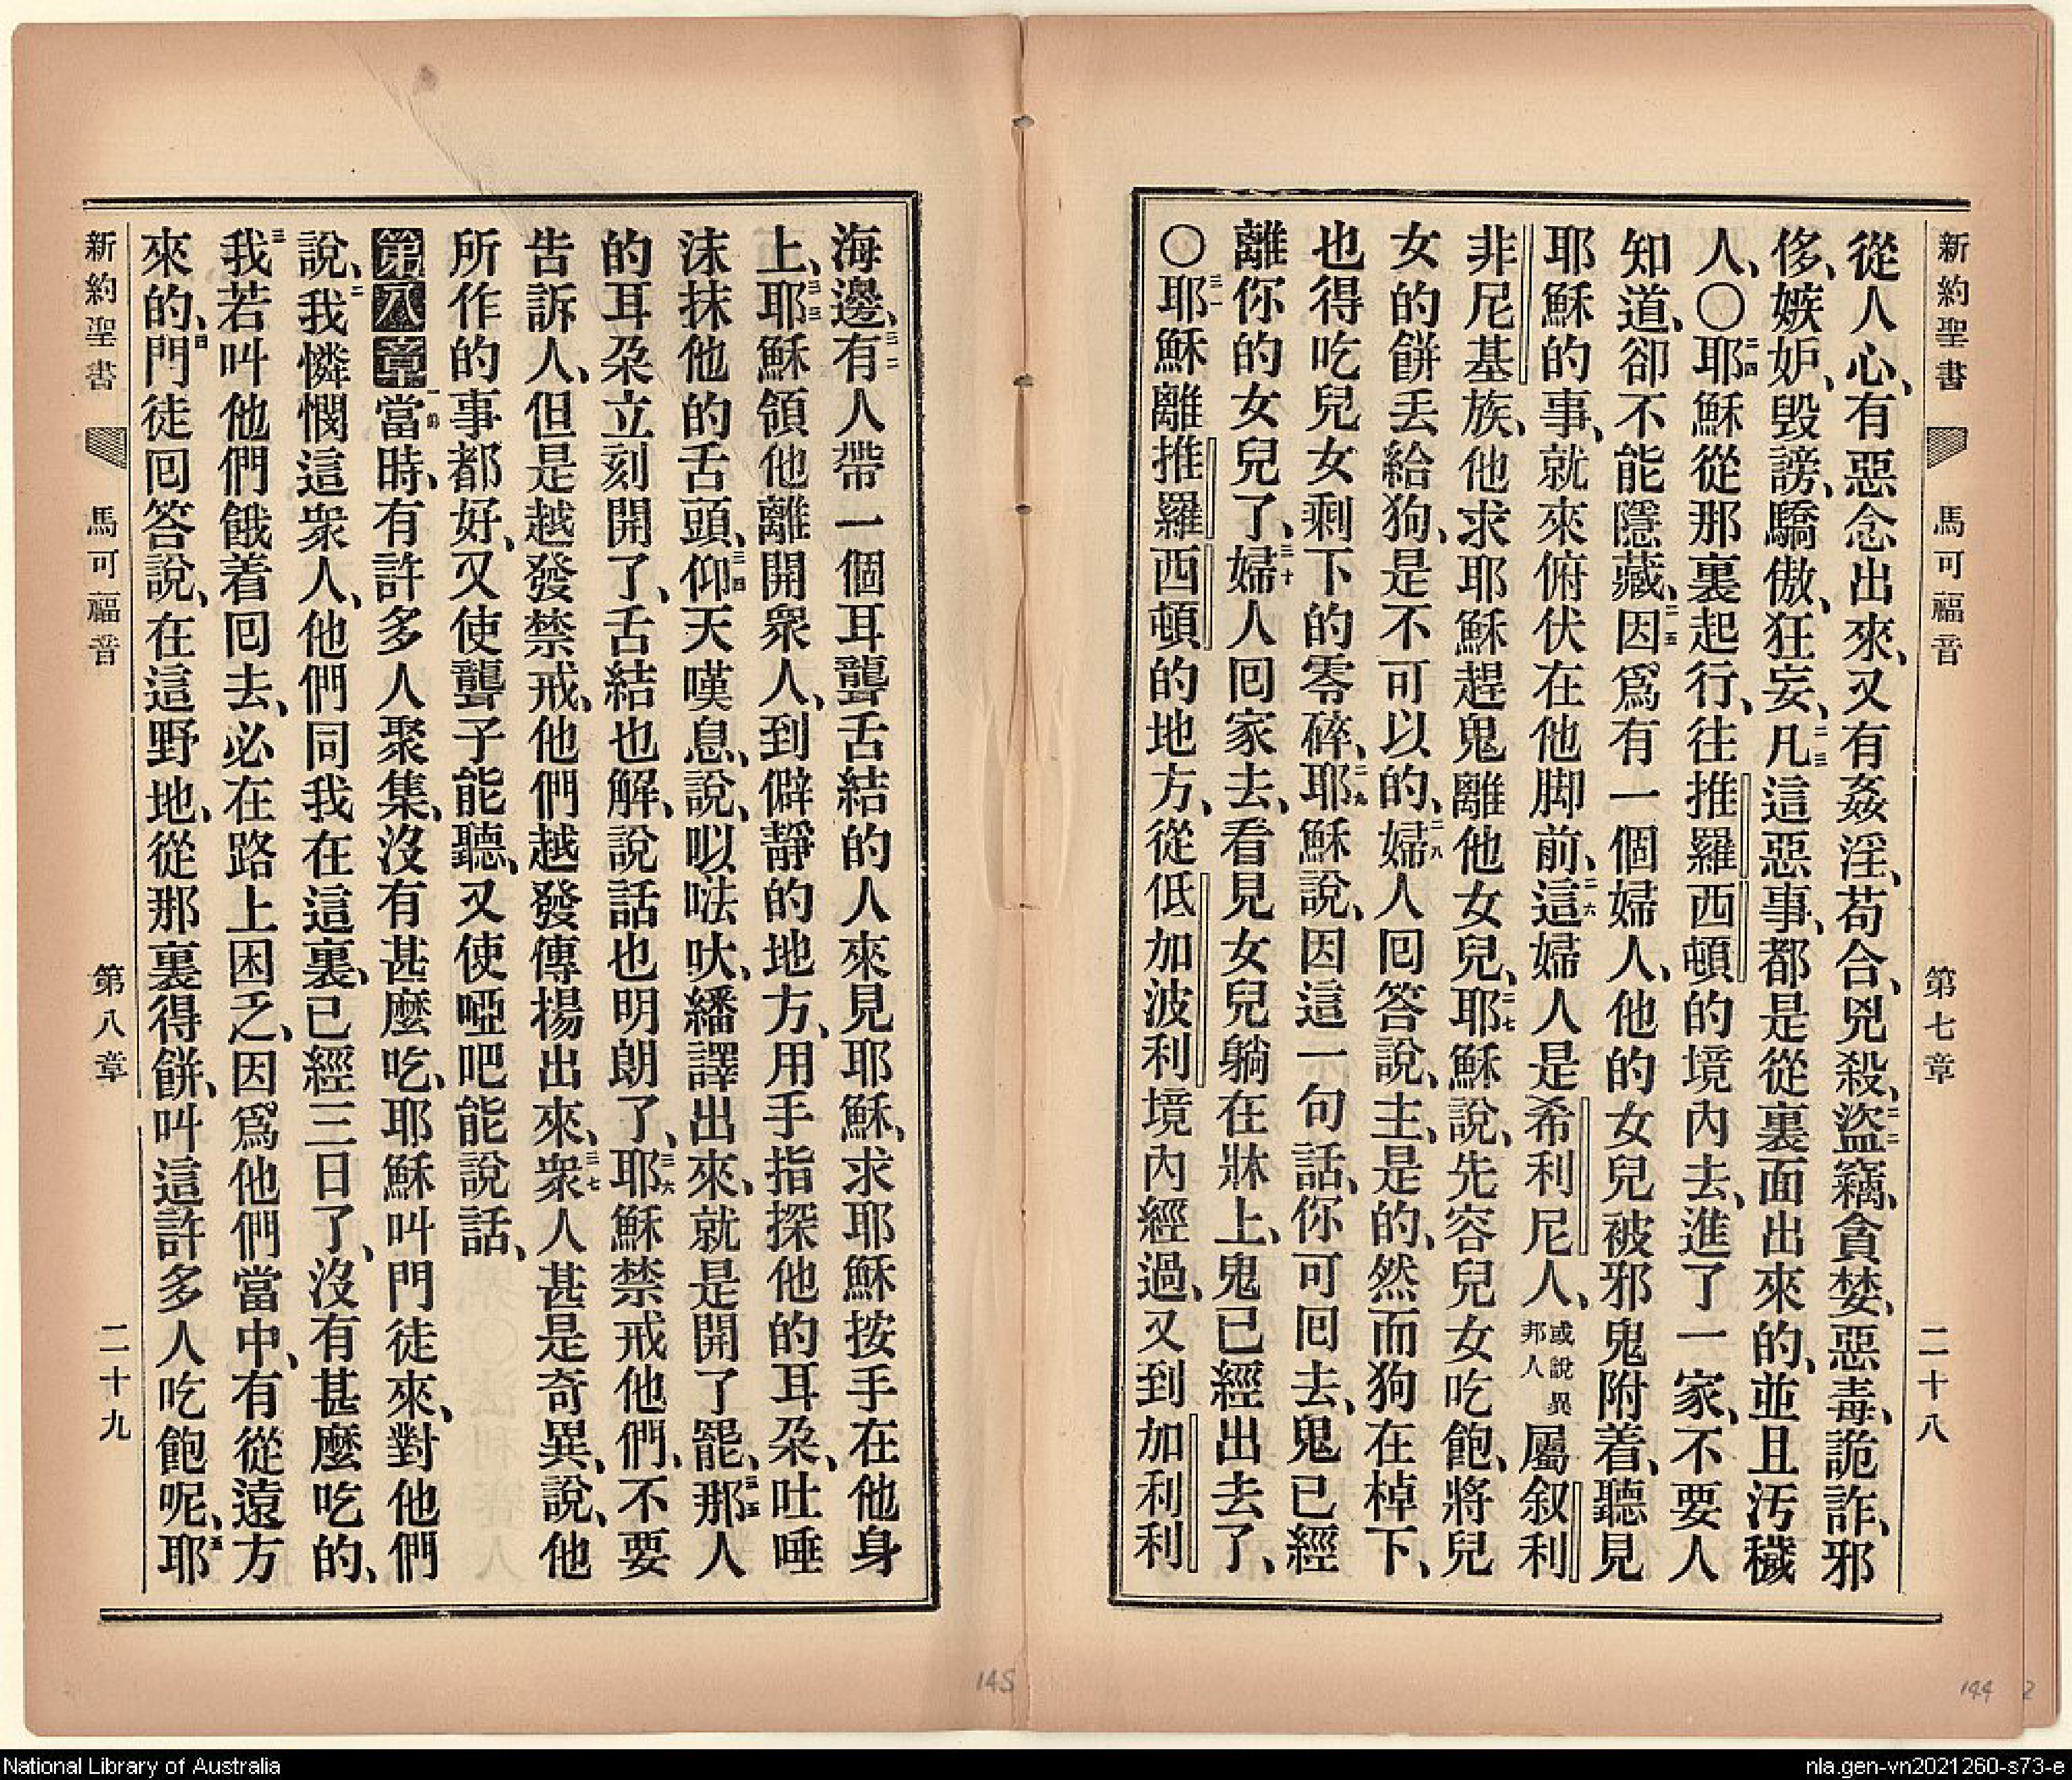 新約聖書 馬可福音 第七章 二十八
從人心、有惡念出來、又有姦淫、苟合、兇殺、二二盜竊、貪婪、惡毒、詭詐、邪
侈、嫉妒、毀謗、驕傲、狂妄、二三凡這惡事、都是從裏面出來的、並且汚穢
人、〇二四耶穌從那裏起行、往推羅西頓的境內去、進了一家、不要人
知道、卻不能隱藏、二五因爲有一個婦人、他的女兒被邪鬼附着、聽見
耶穌的事、就來俯伏在他脚前、二六這婦人是希利尼人、或說異邦人屬叙利
非尼基族、他求耶穌趕鬼離他女兒、二七耶穌說、先容兒女吃飽、將兒
女的餅丟給狗、是不可以的、二八婦人囘答說、主、是的、然而狗在棹下、
也得吃兒女剩下的零碎、二九耶穌說、因這一句話、你可囘去、鬼已經
離你的女兒了、三十婦人囘家去、看見女兒躺在牀上、鬼已經出去了、
〇三一耶穌離推羅西頓的地方、從低加波利境內經過、又到加利利
海邊、三二有人帶一個耳聾舌結的人來見耶穌、求耶穌按手在他身
上、三三耶穌領他離開衆人、到僻靜的地方、用手指探他的耳朶、吐唾
沫抹他的舌頭、三四仰天嘆息、說、㕥呿吠、繙譯出來、就是開了罷、三五那人
的耳朶立刻開了、舌結也解、說話也明朗了、三六耶穌禁戒他們、不要
告訴人、但是越發禁戒、他們越發傳揚出來、三七衆人甚是奇異、說、他
所作的事都好、又使聾子能聽、又使啞吧能說話、
第八章一節當時、有許多人聚集、沒有甚麼吃、耶穌叫門徒來、對他們
說、二我憐憫這衆人、他們同我在這裏、已經三日了、沒有甚麼吃的、
三我若叫他們餓着囘去、必在路上困乏、因爲他們當中、有從遠方
來的、四門徒囘答說、在這野地、從那裏得餅、叫這許多人吃飽呢、五耶
新約聖書 馬可福音 第八章 二十九
145
144
2
National Library of Australia
nla.gen-vn2021260-s73-e